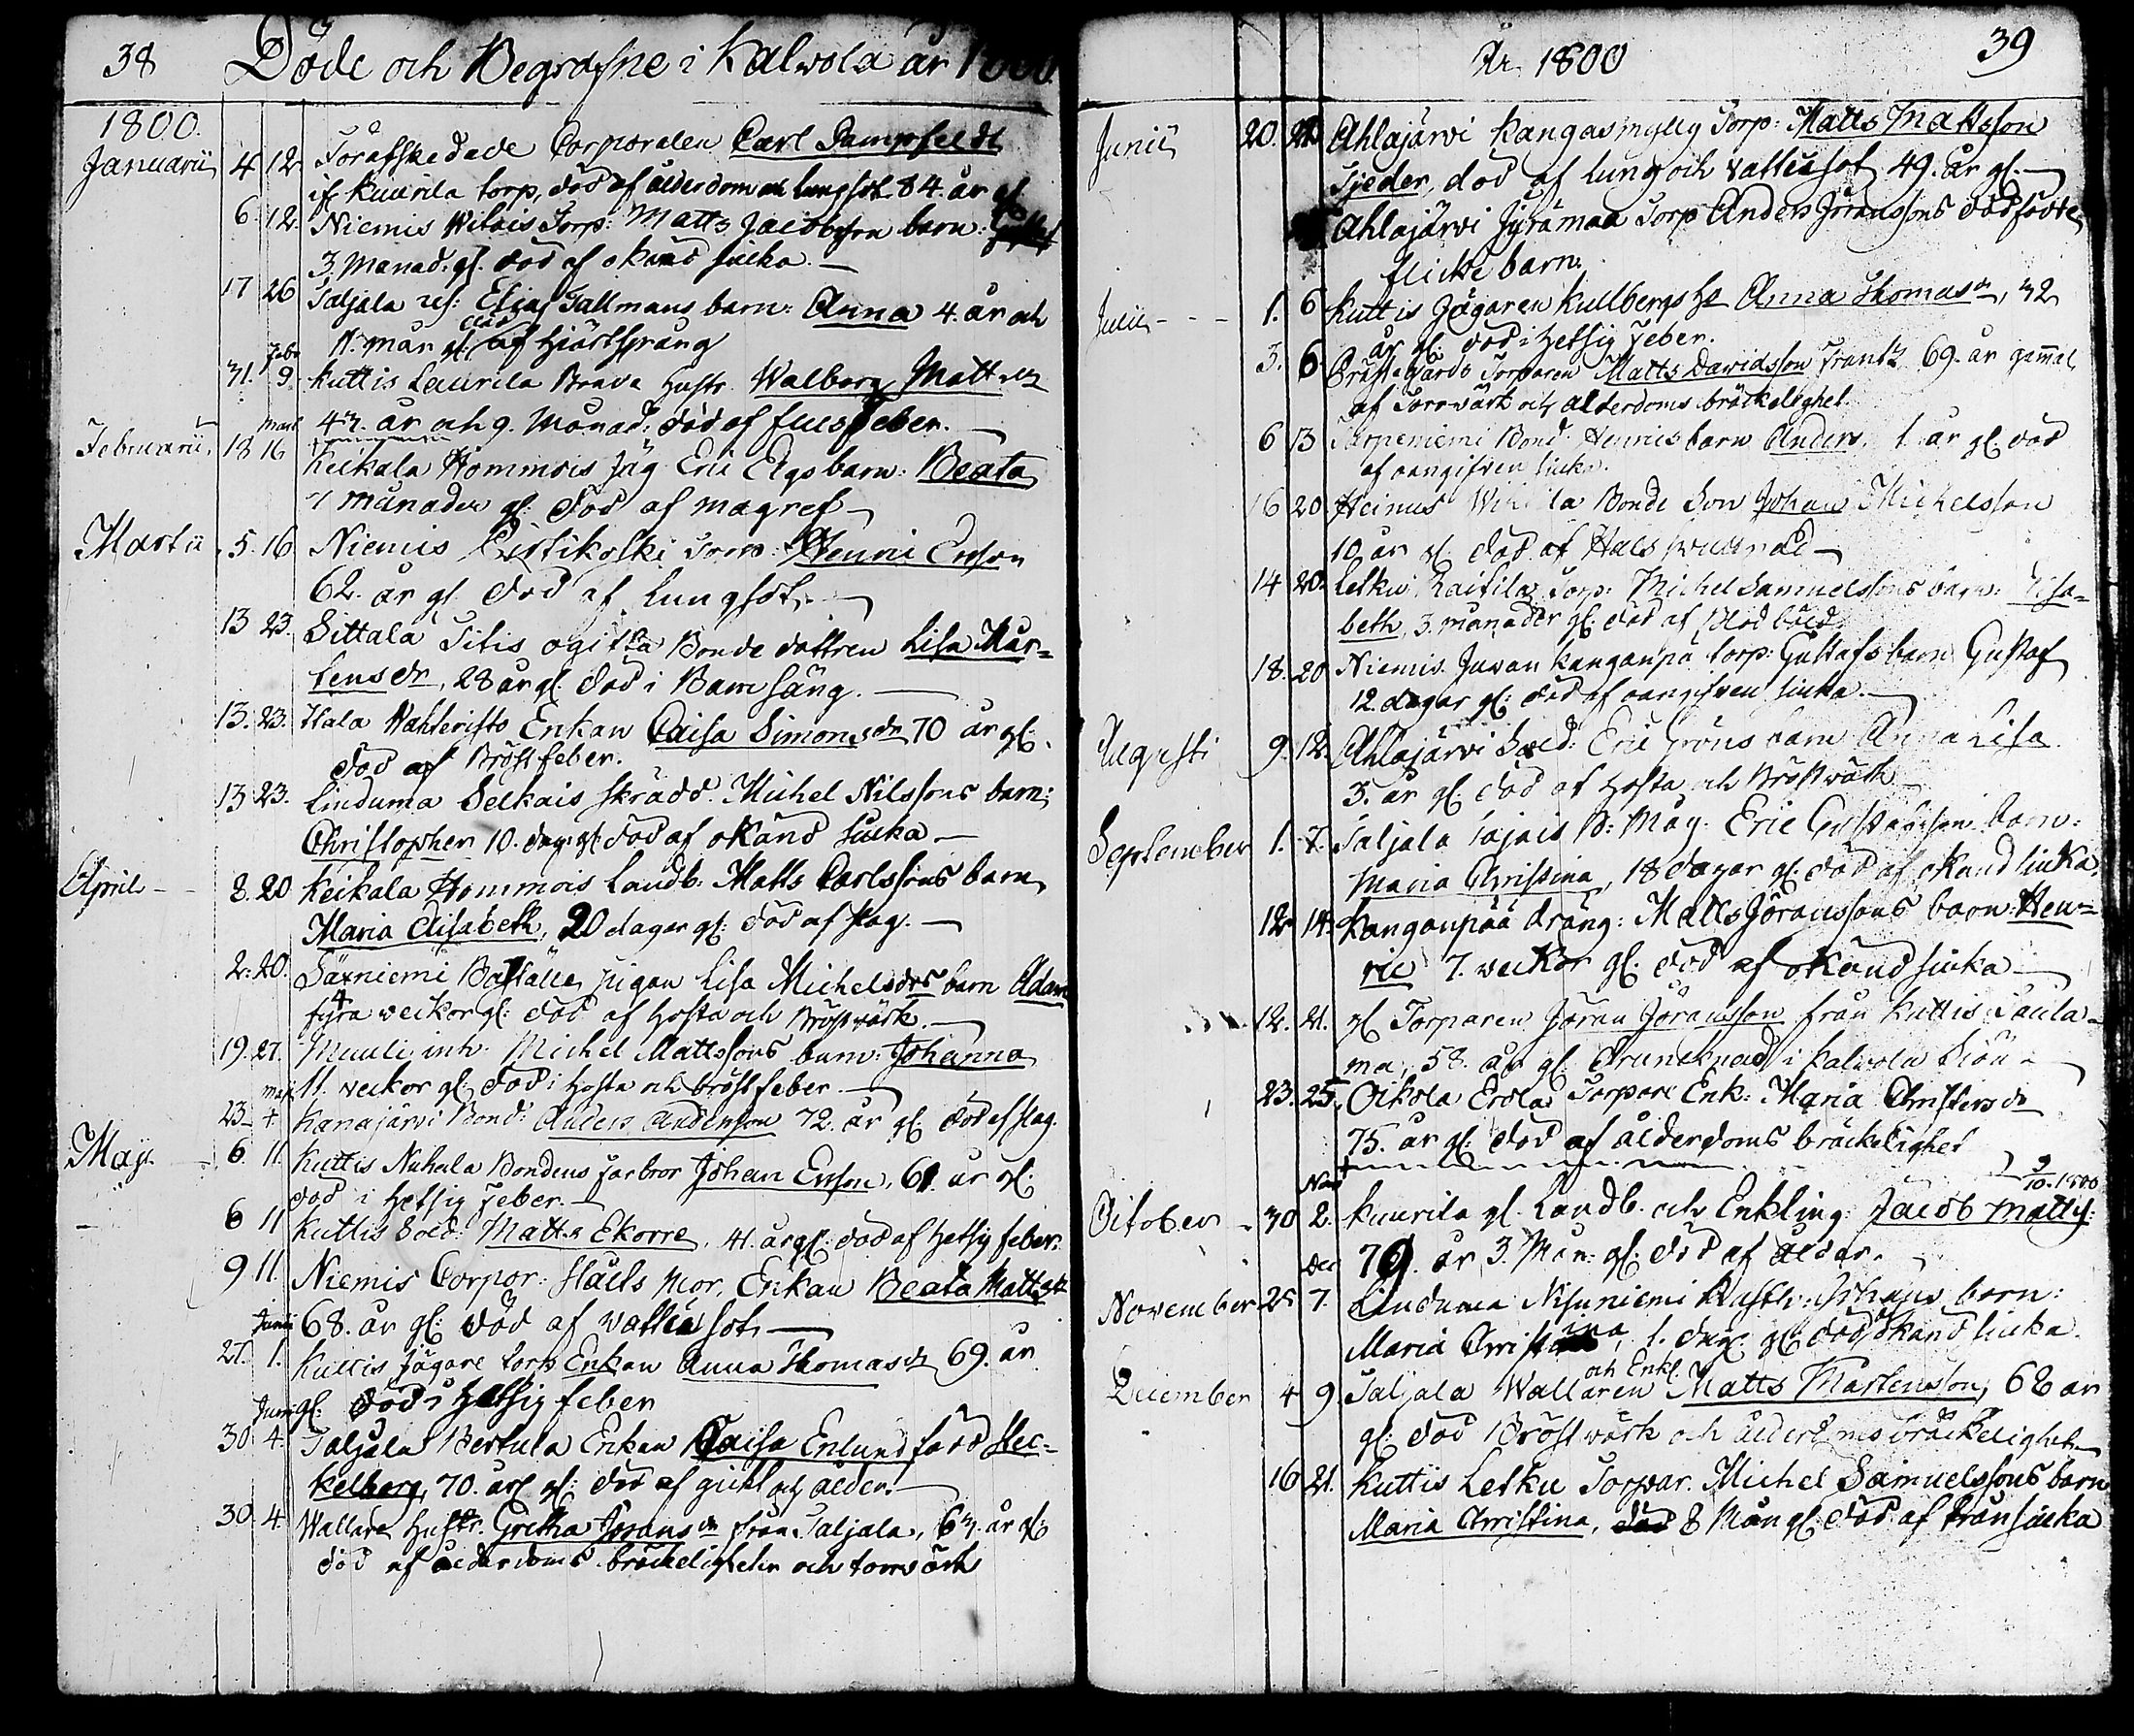 38 Döde och Begrafne i Kalvola år 1800.
1800.
Januarii 4 12 Förafskedade Corporalen Carl Dampfeldt
if Kuurila torp, död af ålderdom och lungsot 84. år gl
6. 12. Niemis Witois Torp: Matts Jacobsson barn:
3. Månad. gl. död af okänd siuka.
17 26 Taljala Elias Tallmans barn: Anna 4. år och
11. mån gl: död af hjärtsprång
Febr
31. 9. Kuttis Laurila Brava Hustr. Walborg Mattsdr
43. år och 9. Månad: död af flussfeber.
Mart
Februarii 18 16 Keikala Hommois Jäg Eric Elgs barn: Beata
7 månader gl: död af magref
Martii 5. 16 Niemis Pirttikoski Torp: Henric Ersson
62. år gl död af Lungsot.
13 23. Sittala Titis ogifta Bonde dottren Lisa Mår=
tensdr, 28 år gl. död i Barnsäng.
13. 23. Itala Wahteristo Enkan Caisa Simonsdr 70 år gl:
död af Bröstfeber.
13 23. Linduma Selkais skrädd. Michel Nilssons barn:
Christopher 10. dag: gl: död af okänd siuka
April 8. 20 Keikala Hommois Landb: Matts Carlssons barn
Maria Elisabeth, 20 dagar gl: död af slag.
2. 20. Säxniemi Backställe pigan Lisa Michelsdrs barn Adam
4
fyra veckor gl: död af hosta och Bröstwärk.
19. 27. Muuli inh: Michel Mattssons barn: Johanna
maji 11. veckor gl: död i hosta och bröstfeber.
23. 4 Kanajärvi Bond: Anders Andersson 72. år gl: död af slag.
Maji 6. 11. Kuttis Nuhala Bondens farbror Johan Ersson, 61. år gl:
död i hetsig Feber.
6 11 Kuttis Sold: Matts Ekorre, 41. år gl: död af hetsig feber.
9 11. Niemis Corpor: Ståls Mor, Enkan Beata Mattsdr
Junii 68. år gl: död af vattusot.
27. 1. Kuttis Jägare torp Enkan Anna Thomasdr 69. år
Junii gl: död i hetsig feber
30. 4. Taljala Bertula Enkan Caisa Enlund född Stec=
kelberg, 70. år gl: död af gickt och ålder.
30. 4. Wallare Hustr. Gretha Jöransdr från Taljala, 63. år gl:
död af ålderdoms bräckligheter och torrwärk
År 1800 39
Junii 20. 22 Ahlajärvi Kangasmylly Torp: Matts Mattsson
Tjeder, död af lung och vattusot 49. år gl.
Ahlajärvi Jyrämaa Torp Anders Jöranssons dödfödde
flicke barn.
Julii 1. 6 Kuttis Jägaren Kullbergs H: Anna Thomasdr, 32
år gl: död i hetsig feber.
3. 6 Prästegårds Torparen Matts Davidsson Frantz 69. år gammal
af Torrwärk och ålderdoms bräckelighet.
6 13 Torpeniemi Bond: Henrics barn Anders, 1. år gl: död
af oangifven siuka.
16 20. Heinus la Bonde Son Johan Michelsson
10. år gl. död af Halssvullnad
14 20. Letku Raitila Torp: Michel Samuelssons barn: Elisa=
beth, 3. månader gl: död af Blodböld
18. 20 Niemis Juvan Kanganpä torp: Gustafs barn Gustaf
12. dagar gl: död af oangifven siuka
Augusti 9. 12. Ahlajärvi Sold: Eric Gröns barn Anna Lisa
3. år gl: död af hosta och Bröstwärk
September 1. 7. Taljala Tajais B: Måg: Eric Gustafsson barn:
Maria Christina, 18 dagar gl: död af okänd siuka.
12. 14. Kanganpää dräng: Matts Jöranssons barn: Hen=
ric 7. veckor gl: död af okänd siuka
12. 21. gl Torparen Jöran Jöransson från Kuttis Taula
ma, 58. år gl. drunknad i Kalvola Siön
23. 25. Oikola Erola Torpare Enk: Maria Christersdr
75. år gl: död af ålderdoms bräckelighet
9/10. 1800
Nov
October 30 2. Kuurila gl. Landb. och Enkling: Jacob Matts:
Dec 79. år 3. Mån: gl: död af ålder.
November 25 7. Linduma Nisuniemi Johans barn:
Maria Christina, 1. dag: gl: död okänd siuka.
och Enkl.
December 4 9. Taljala Wallaren Matts Mårtensson, 68 år
gl: död Bröstwärk och ålderdoms bräckelighet
16 21. Kuttis Letku Torpar. Michel Samuelssons barn
Maria Christina, död 8 Mån gl: död af Trånsiuka